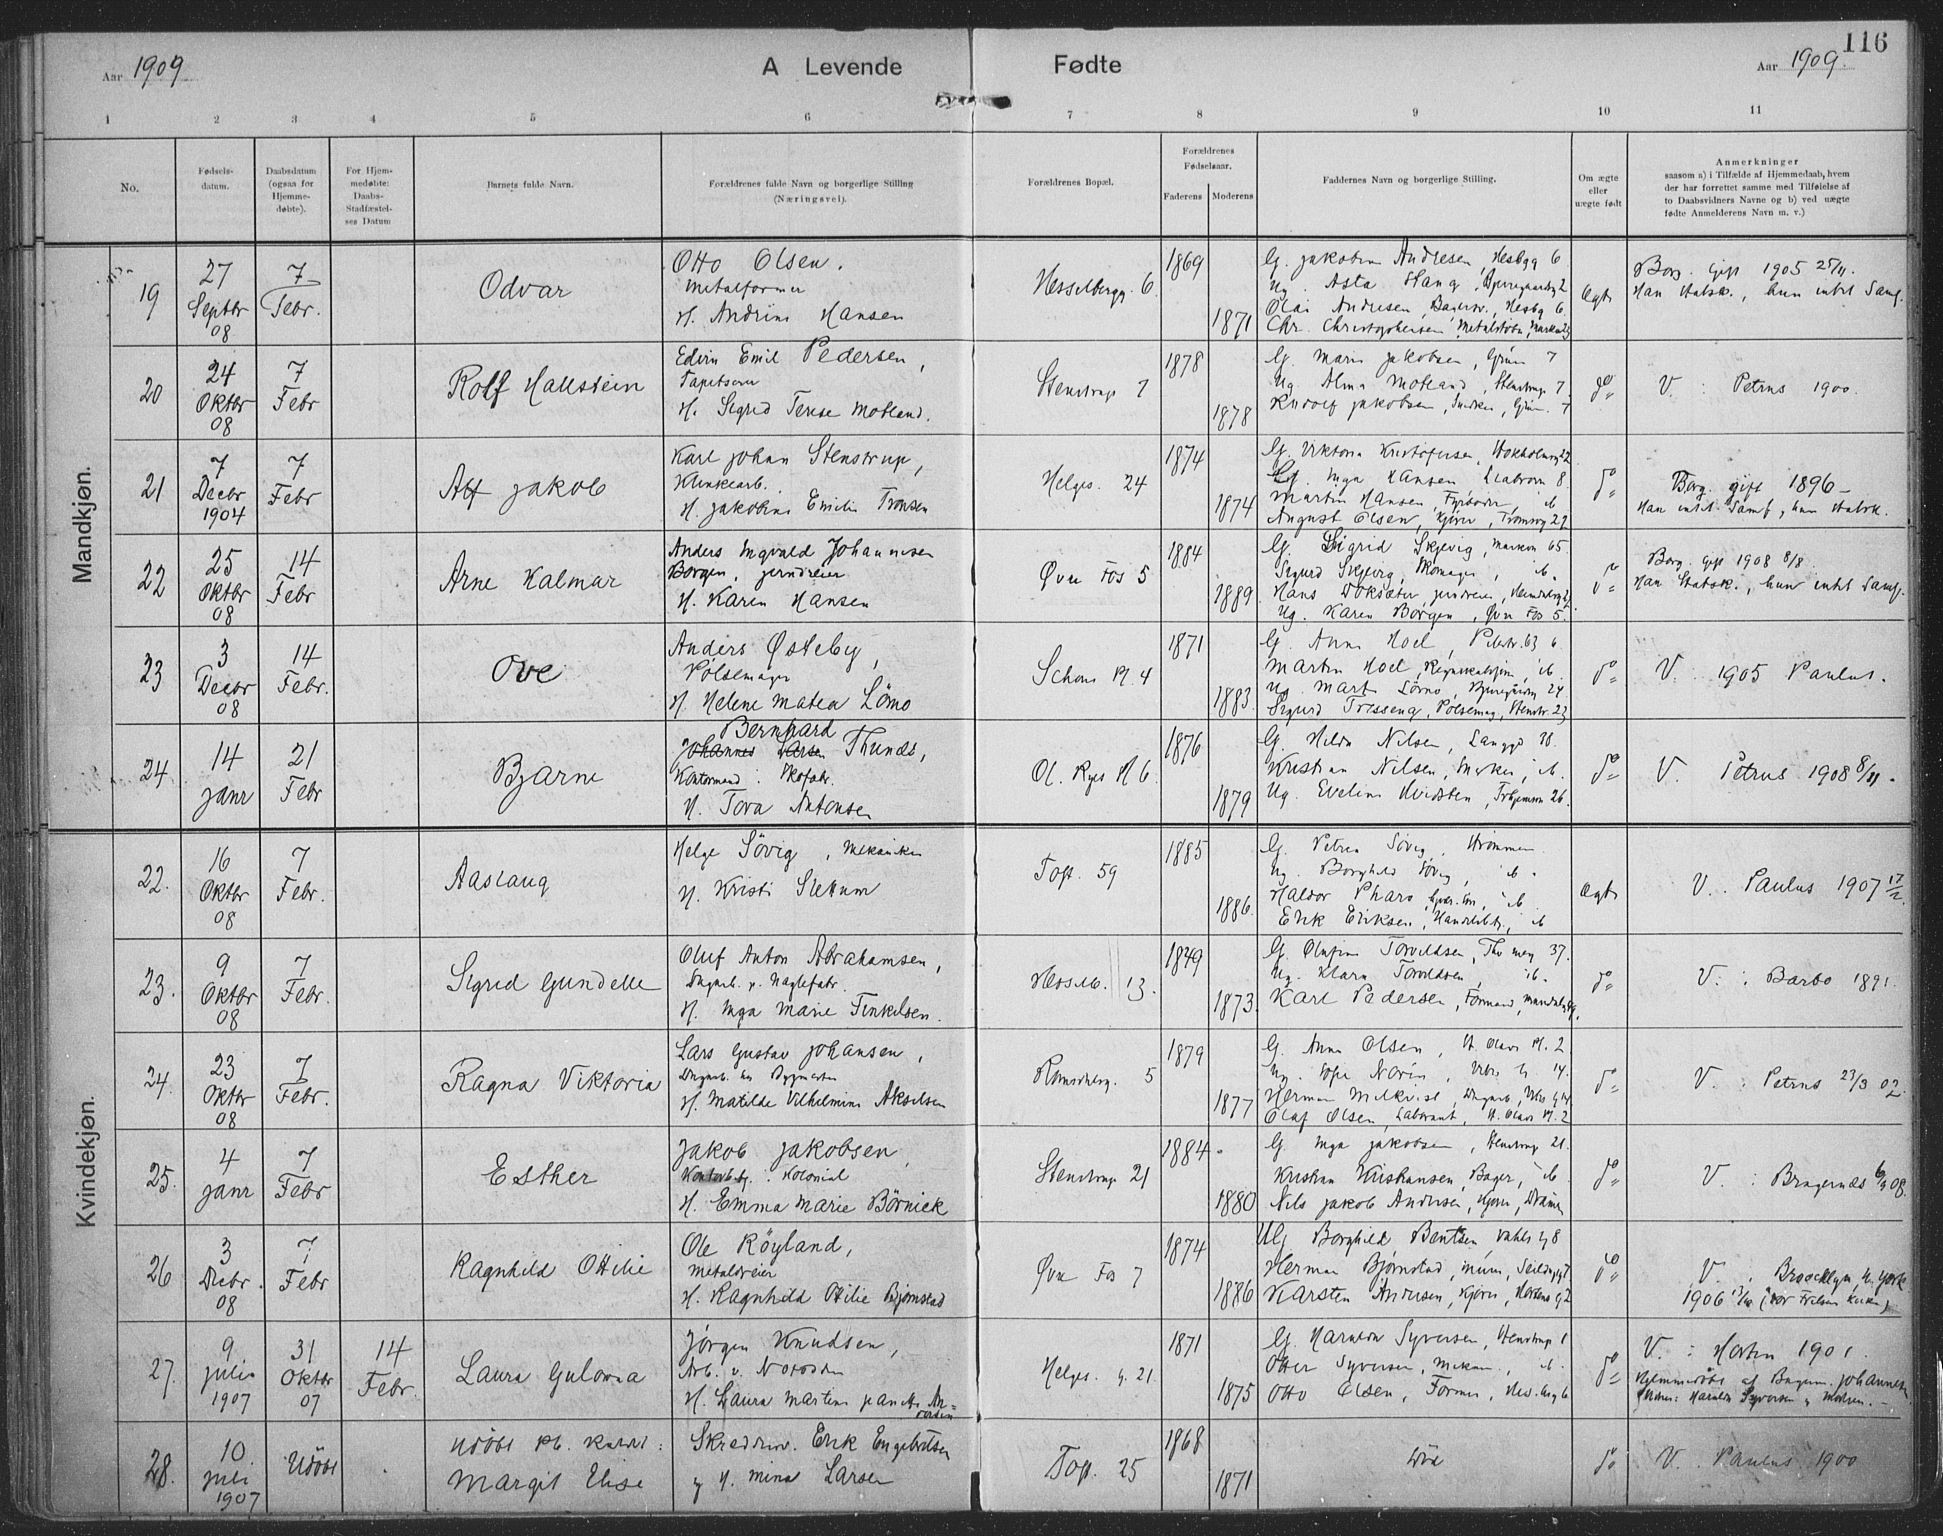 116
Aar 1909
A Levende Fødte
Aar 1909.
1 2 3 4 5 6 7 8 9 10 11
No.
Fødsels-
datum.
Daabsdatum
(ogsaa for
Hjemme-
døbte).
For Hjem-
medøbte:
Daabs-
Stadfæstel-
ses Datum
Barnets fulde Navn.
Forældrenes fulde Navn og borgerlige Stilling
(Næringsvei).
Forældrenes Bopæl.
Forældrenes
Fødselsaar.
Faderens Moderens
Faddernes Navn og borgerlige Stilling.
Om ægte
eller
uægte født
Anmerkninger
saasom a) i Tilfælde af Hjemmedaab, hvem
der har forrettet samme med Tilføielse af
to Daabsvidners Navne og b) ved uægte
fødte Anmelderens Navn m. v.)
Mandkjøn.
19
27
Septbr
08
7
Febr.
Odvar
Otto Olsen.
Metalformer
H. Andrine Hansen
Hesselbergg. 6
1869
1871
G. Jakobine Andresen, Hesbgg 6
Ug. Asta Stang
Olai Andresen, Hesbg 6.
Chr. Christophersen
ægte
Borg. gift 1905 25/11.
Han Statsk., hun intet Samf.
20
24
Oktbr
08
7
Febr
Rolf Hallstein
Edvin Emil Pedersen,
Tapetserer
H. Sigrid Terese Motland.
Stenstrup 7
1878
1878
G. Marie Jakobsen, Grün 7
Ug. Alma Motland, Stenstrup. 7
Rudolf Jakobsen, Snedker, Grün. 7
do
V. Petrus 1900.
21
7
Decbr
1904
7
Febr
Alf Jakob
Karl Johan Stenstrup,
Klinkearb.
H. Jakobine Emilie Tronsen
Helges. 24
1874
1874
G. Viktoria Kristofersen
G. Inga Hansen
Martin Hansen, Fyrbøder, ib
August Olsen, Kjører, Tromsøg 22
do
Borg. gift 1896 –
Han intet Samf, hun Statsk.
22
25
Oktbr
08
14
Febr
Arne Kalmar
Anders Ingvald Johannesen
Borgen, jerndreier
H. Karen Hansen
Øvre Fos 5
1884
1889
G. Sigrid Skjevig, Markvn 65
Sigurd Skjevig, Skomager, ib.
Hans
Ug. Karen Borgen, Øvre Fos 5.
do
Borg. gift 1908 8/8.
Han Statsk., hun intet Samf.
23
3
Decbr
08
14
Febr.
Ove
Anders Østeby,
Pølsemager
H. Helene Matea Lömo
Schous Pl. 4
1871
1883
G. Anna Hoel
Martin Hoel, ib.
Ug. Marta Lömo
Sigurd Tresseng, Pølsemag, Stenstr. 23
do
V. 1905 Paulus.
24.
14
Janr
21
Febr
Bjarne
Bernhard
Johannes Larsen Thunæs,
Kontormand. Skofabr.
H. Tora Antonsen
Ol. Ryes Pl 6.
1876
1879
G. Hilda Nilsen
Kristian Nilsen, Snekker, ib.
Ug. Eveline Kvidsten
do
V. Petrus 1908 8/11.
Kvindekjøn.
22.
16
Oktbr
08
7
Febr.
Aaslaug
Helge Sövig, Mekaniker
H. Kristi Slettum
Toft. 59
1885
1886.
G. Petrea Sövig, Strömmen
Ug. Borghild Sövig, ib.
Haldor Pharo, ib
Erik Eriksen, ib
ægte
V. Paulus 1907 17/2.
23.
9
Oktbr
08
7
Febr.
Sigrid Gundelle
Oluf Anton Abrahamsen,
Dagarb. p. Naglefabr.
H. Inga Marie Finkelsen.
Hesselb. 13.
1849
1873.
G. Olufine Torvildsen, Th. mey. 37.
Ug. Klara Torvildsen, ib.
Karl Pedersen, Formand
do
V. : Barbo 1891.
24.
23
Oktbr
08
7
Febr.
Ragna Viktoria
Lars Gustav Johansen,
H. Matilde Vilhelmine Akselsen
Romsdalsg. 5
1879
1877
G. Anna Olsen, St. Olavs Pl. 2
Herman
Olaf Olsen, Laborant, St. Olavs Pl. 2
do
V. : Petrus 23/3 02.
25.
4
Janr
7
Febr
Esther
Jakob Jakobsen,
Kolonial
H. Emma Marie Börnick
Stenstrup 21
1884.
1880
G. Inga Jakobsen, Stenstrup 21.
Kristian Kristiansen, Bager, ib.
Nils Jakob Andersen, Kjører
do
V. : Bragernes 08.
26
3
Decbr.
08
7
Febr
Ragnhild Ottilie
Ole Röyland,
Metaldreier
H. Ragnhild Otilie Bjørnstad
Øvre Fos 7
1874
1886
Ug Borghild Bentsen
Herman Bjørnstad, Murer
Karsten Andresen, Kjører
do
V. : Broocklyn, N. York
1906
27.
9
Juli
1907
31
Oktbr
07
14
Febr.
Laura Gulovna
Jørgen Knudsen,
Arb. v. Notodden
H. Laura Martine
Helges. g. 21.
1871
1875
G. Haralda Syversen, Stenstrup 1
Otter Syversen, ib.
Otto Olsen, Former
do
V. : Horten 1901.
Hjemmedøbt af Johannesen
28.
10
Juli
1907
Udöbt
Udöbt
Margit Elise
Skrædder. Erik Engebretsen
og H. Mina Larsen
Toft. 25
1868
1871
do
V. Paulus 1900